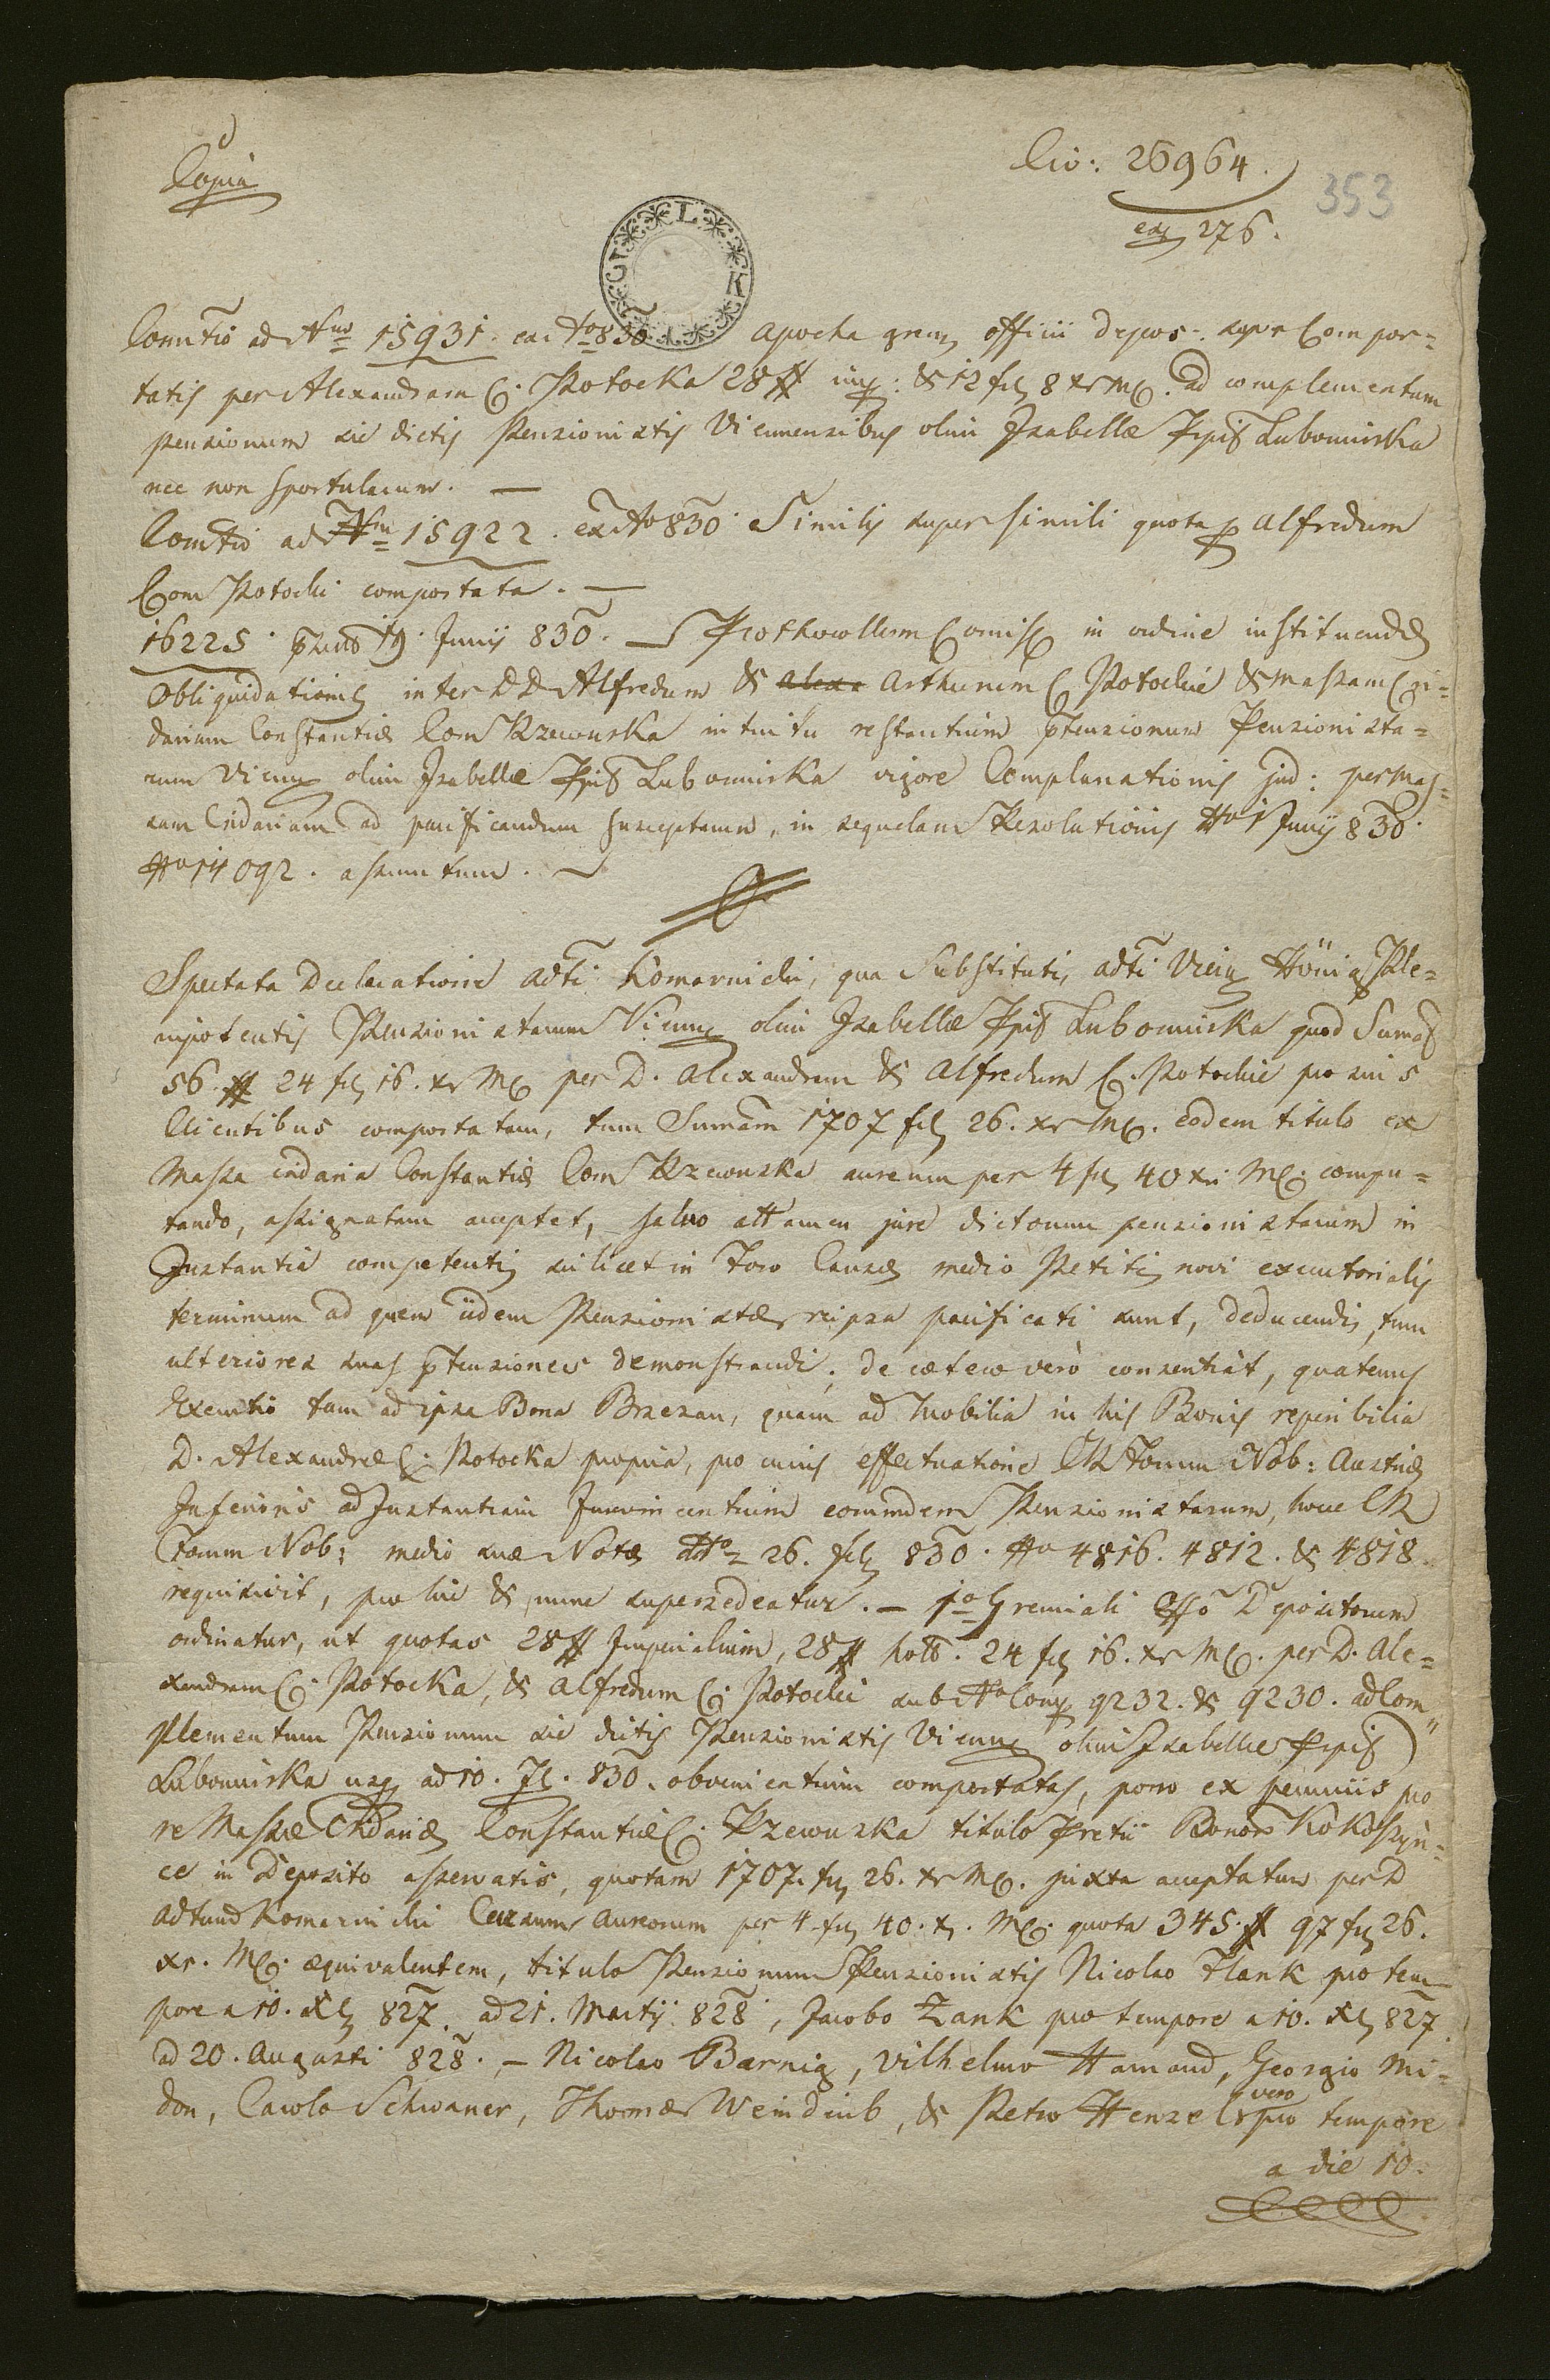 Copia
Civ: 26964.
353
exp 276.
L K
Comtio ad Nrum 15931. ex Ao 830 Apocha grem officii depos: super Compor=
tatis per Alexandram C. Potocka 28 # imp: & 12 fr 8 xr MC. ad complementum
pensionum sic dictis Pensionistis Viennensibus olim Isabellæ Ppis Lubomirska
nec non sportularum. —
Comtio ad Nrm 15922. ex Ao 830. Similis super simili quota p Alfredum
Com Potocki comportata. —
16225. præs 19. Junij 830. — Prothocollum Comiss in ordine instituendæ
Obliquidationis inter DD Alfredum & Alexa Arthurum C Potockie & massam Cri=
dariam Constantiæ Com Rzewuska intuitu restantium prtensionum Pensionista=
rum Vienn olim Isabellæ Ppis Lubomirska vigore Complanationis jud: per Mas=
sam Cridariam ad pacificandum susceptarum, in sequelam Resolutionis Ho 1 Junij 830.
No 14092. assumtum. —
Spectata Declaratione Adti Komarnicki, qua Substituti, adti Vienn Hönig Ple=
nipotentis Pensionistarum Vienn olim Isabellæ Ppis Lubomirska quod Sumas
56. # 24 fr 16. xr MC per D. Alexandram & Alfredum C. Potockie pro suis
Clientibus comportatam, tum Sumam 1707 fr 26. xr MC. eodem titulo ex
Massa cridaria Constantiæ Com Rzewuska aureum per 4 fr 40 xr. MC. compu=
tando, assignatam acceptet, salvo attamen jure dictorum pensionistarum in
Instantia competenti scilicet in Foro Causæ medio Petiti novi executorialis
terminum ad quem iidem Pensionistæ reipsa pacificati sunt, deducendi, tum
ulteriores suas prtensiones demonstrandi; de cætero verò consentiat, quatenus
Executio tam ad ipsa Bona Brzezan, quam ad Mobilia in his Bonis reperibilia
D. Alexandræ C. Potocka propria, pro cuius effectuatione CR Forum Nob: Austriæ
Inferioris ad Instantiam Juevincentium eorundem Pensionistarum, hocce CR
Forum Nob: medio suæ Notæ ddto 26. fr 830. No 4816. 4812. & 4818.
requisivit, pro hic & nunc supersedeatur. — 1o Gremiali Offo Depositorum
ordinatur, ut quotas 28 # Imperialium, 28 # holl. 24 fr 16. xr MC. per D. Ale=
xandram C. Potocka, & Alfredum C. Potocki sub No Comp 9232. & 9230. ad Com=
plementum Pensionum sic dictis Pensionistis Vienn olim Isabellæ Ppis
Lubomirska usq ad 10. Jl. 830. obvenientium comportatas, porro ex pecuniis pro
re Massæ Cridariæ Constantiæ C. Rzewuska titulo Pretii Bonor Kokoszyń=
ce in Deposito asservatis, quotam 1707. fr 26. xr MC. juxta acceptatum per D
Adtum Komarnicki Cursum Aureorum per 4 fr 40. x. MC. quota 345. # 97 fr 26.
xr. MC. æquivalentem, titulo Pensionum Pensionistis Nicolao Flank pro tem=
pore a 10. Xb 827. ad 21. Martij 828, Jacobo Zank pro tempore a 10. Xb 827
ad 20. Augusti 828. — Nicolao Bærnig, Vilhelmo Hamand, Georgio Mi=
don, Carolo Schwaner, Thomæ Weindinb, & Petro Henzel vero pro tempore
a die 10.